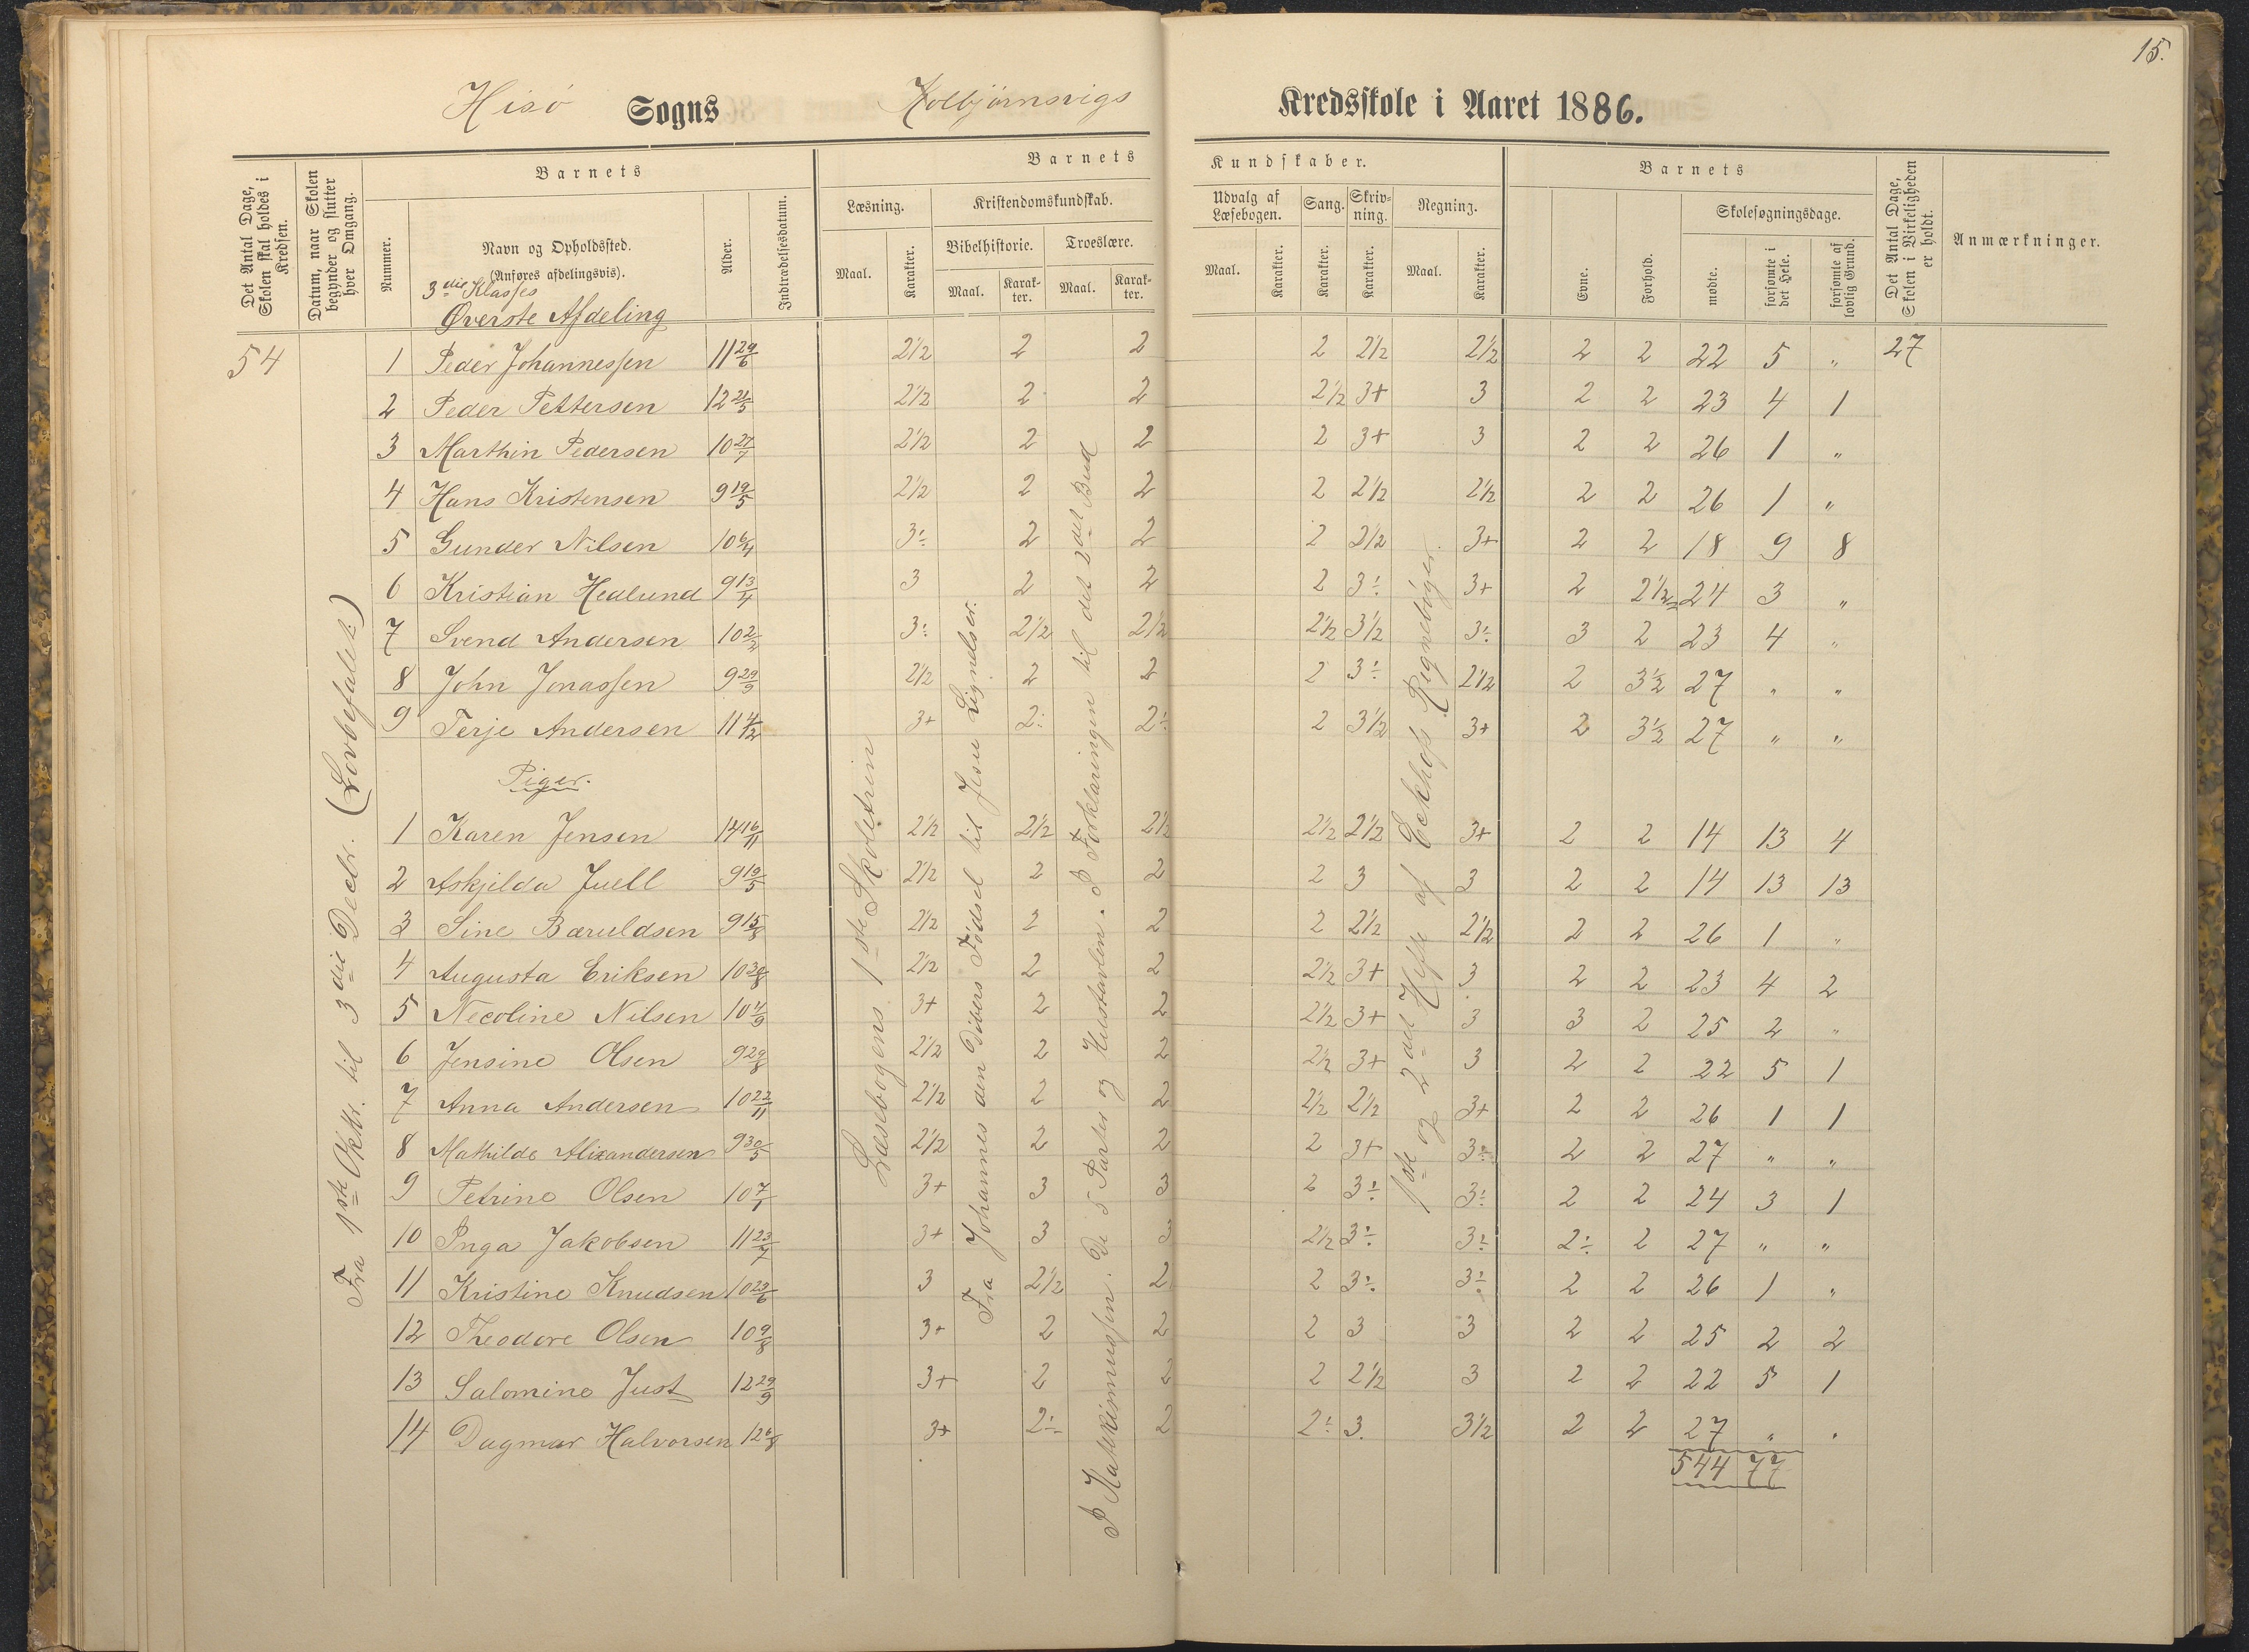 15.
Hisø Sogns Kolbjørnsvigs Kredsskole i Aaret 1886.
Det Antal Dage, Skolen skal holdes i Kredsen.
Datum, naar Skolen begynder og slutter hver Omgang.
Barnets
Nummer.
Navn og Opholdssted.
(Anføres afdelingsvis).
3die Klasses
Øverste Afdeling
Alder.
Indtrædelsesdatum.
Barnets Kundskaber.
Læsning.
Maal.
Karakter.
Kristendomskundskab.
Bibelhistorie.
Maal.
Karakter.
Troeslære.
Maal.
Karakter.
Udvalg af Læsebogen.
Maal.
Karakter.
Sang.
Karakter.
Skrivning.
Karakter.
Regning.
Maal.
Karakter.
Barnets
Evne.
Forhold.
Skolesøgningsdage.
mødte.
forsømte i det Hele.
forsømte af lovlig Grund.
Det Antal Dage, Skolen i Virkeligheden er holdt.
Anmærkninger.
54 1 Peder Johannessen 11 29/6 2½ 2 2 2 2½ 2½ 2 2 22 5 " 27
2 Peder Pettersen 12 21/5 2½ 2 2 2½ 3+ 3 2 2 23 4 1
3 Marthin Pedersen 10 27/7 2½ 2 2 2 3+ 3 2 2 26 1 "
4 Hans Kristensen 9 19/5 2½ 2 2 2 2½ 2½ 2 2 26 1 "
5 Gunder Nilsen 10 6/4 3÷ 2 2 2 2½ 3+ 2 2 18 9 8
6 Kristian Hedlund 9 13/4 3 2 2 2 3÷ 3+ 2 2½ 24 3 "
7 Svend Andersen 10 2/2 3÷ 2½ 2½ 2½ 3½ 3÷ 3 2 23 4 "
8 John Jonassen 9 29/9 2½ 2 2 2 3÷ 2½ 2 3½ 27 " "
9 Terje Andersen 11 4/2 3+ 2÷ 2÷ 2 3½ 3+ 2 3½ 27 " "
Piger.
1 Karen Jensen 14 16/11 2½ 2½ 2½ 2½ 2½ 3+ 2 2 14 13 4
2 Askjilda Juell 9 19/5 2½ 2 2 2 3 3 2 2 14 13 13
3 Sine Bæruldsen 9 15/8 2½ 2 2 2 2½ 2½ 2 2 26 1 "
4 Augusta Eriksen 10 30/8 2½ 2 2 2½ 3+ 3 2 2 23 4 2
5 Necoline Nilsen 10 4/9 3+ 2 2 2½ 3+ 3 3 2 25 2 "
6 Jensine Olsen 9 29/8 2½ 2 2 2½ 3+ 3 2 2 22 5 1
7 Anna Andersen 10 22/11 2½ 2 2 2½ 2½ 3+ 2 2 26 1 1
8 Mathilde Alixandersen 9 30/5 2½ 2 2 2 3+ 3÷ 2 2 27 " "
9 Petrine Olsen 10 7/1 3+ 3 3 2 3÷ 3÷ 2 2 24 3 1
10 Inga Jakobsen 11 23/7 3+ 3 3 2½ 3÷ 3÷ 2÷ 2 27 " "
11 Kristine Knudsen 10 23/6 3 2½ 2 2 3÷ 3÷ 2 2 26 1 "
12 Theodore Olsen 10 9/8 3+ 2 2 2 3 3 2 2 25 2 2
13 Salomine Just 12 29/9 3+ 2 2 2 2½ 3 2 2 22 5 1
14 Dagmar Halvorsen 12 6/8 3+ 2÷ 2 2÷ 3. 3½ 2 2 27 " "
544 77
Fra 1ste Oktbr. til 3die Decbr. (Lovbefalet)
Læsebogens 1ste Skoletrin
Fra Johannes den Døbers Fødsel til Jesu Lignelser.
I Katekismussen. De 5 Parter og Hustavlen. I Forklaringen til det 2det Bud
1ste og 2det Hefte af Eckhofs Regnebøger.